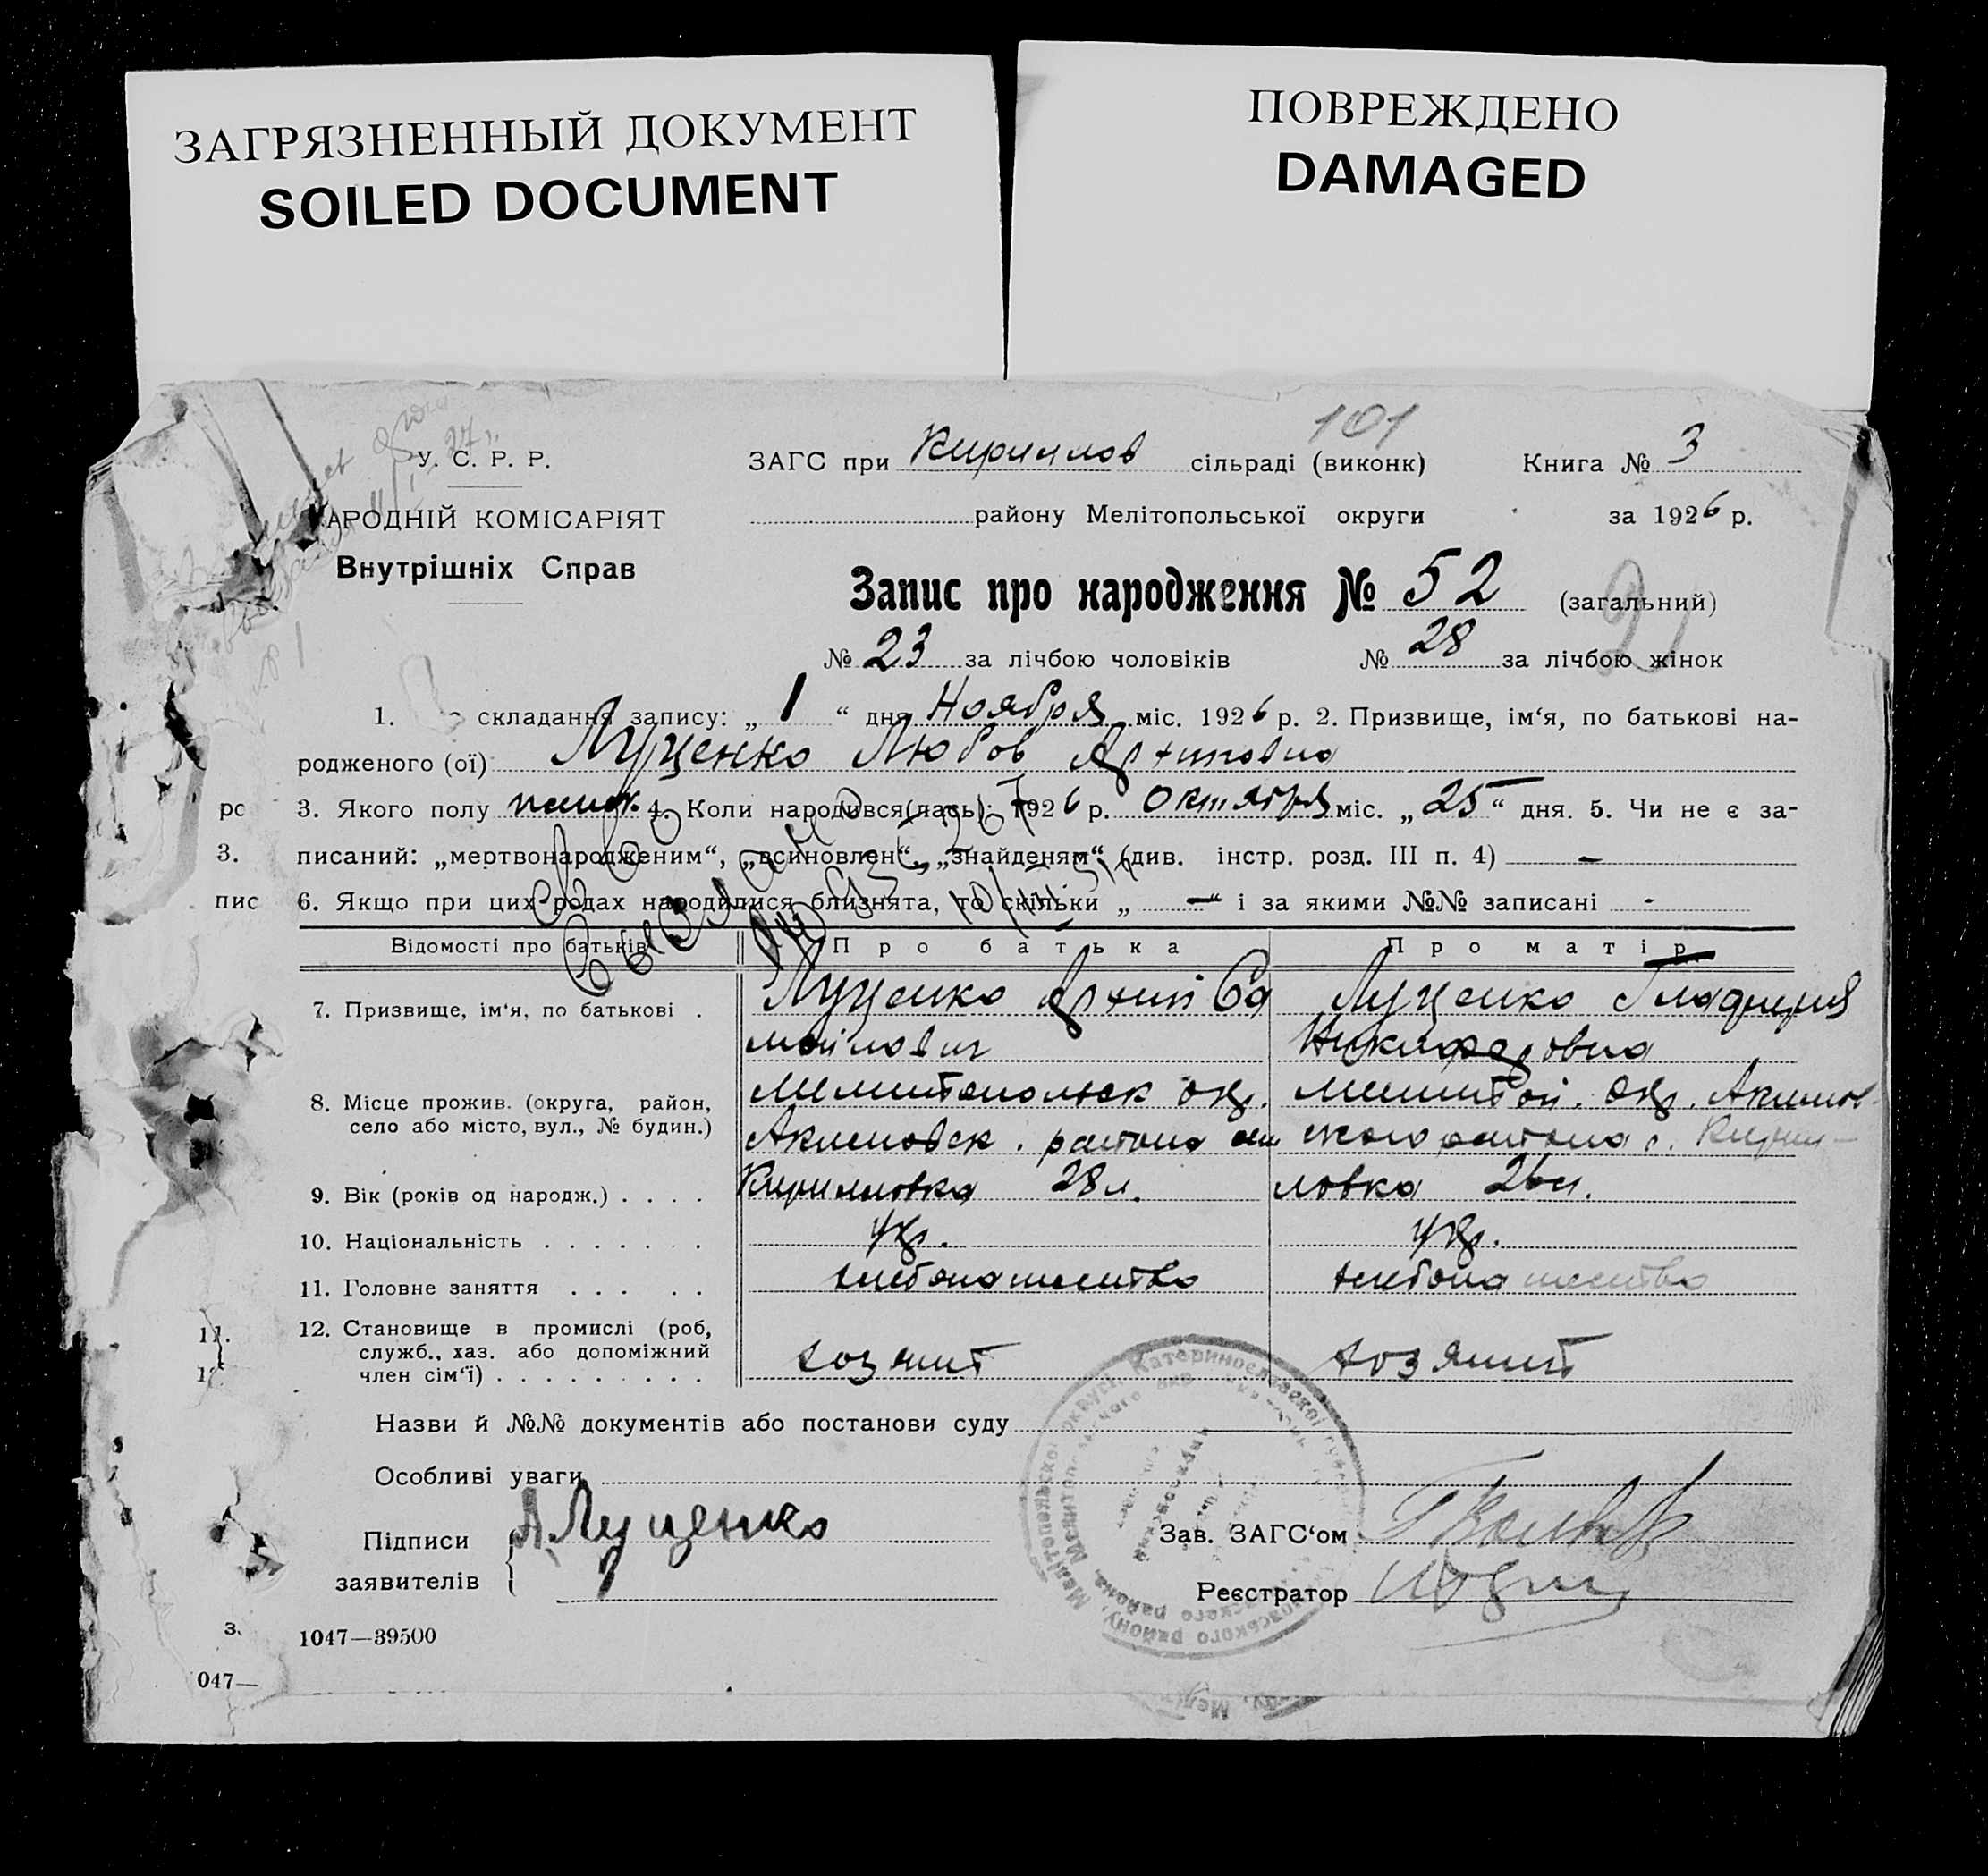 ЗАГРЯЗНЕННЫЙ ДОКУМЕНТ
SOILED DOCUMENT
ПОВРЕЖДЕНО
DAMAGED
101
У. С. Р. Р.
27 г.
ЗАГС при Кириллов сільраді (виконк)
Книга № 3
АРОДНІЙ КОМІСАРІЯТ
району Мелітопольської округи
за 1926 р.
Внутрішніх Справ
Запис про народження № 52 (загальний)
№ 23 за лічбою чоловіків № 28 за лічбою жінок
1. складання запису: „ 1 “ дня Ноября міс. 1926 р. 2. Призвище, ім‘я, по батькові на-
родженого (ої) Луценко Любов Архиповна
3. Якого полу 4. Коли народився(лась): 1926 р. Октября міс. „ 25 “ дня. 5. Чи не є за-
писаний: „мертвонародженим“, „всиновлен“, „знайденям“ (див. інстр. розд. III п. 4) –
6. Якщо при цих родах народилися близнята, то скільки „ — “ і за якими №№ записані -
Відомості про батьків
Про батька
Про матір
7. Призвище, ім‘я, по батькові .
Луценко Архип Са
мойлович
Луценко Гладирия
Никифоровна
8. Місце прожив. (округа, район,
село або місто, вул., № будин.)
Мелитопольск окр.
Акимовск. района
Мелитоп. окр. Акимов-
ского района с. Кирил-
9. Вік (років од народж.) . . . .
Кирилловка 28 л.
ловка 26 л.
10. Національність . . . . . . .
укр.
укр.
11. Головне заняття . . . . .
хлебопашество
хлебопашество
12. Становище в промислі (роб,
служб., хаз. або допоміжний
член сім‘ї) . . . . . . . . .
хозяин
хозяин
Назви й №№ документів або постанови суду
Особливі уваги
Підписи
заявителів
А Луценко
Зав. ЗАГС‘ом
Реєстратор
1047—39500
ро
3.
пис
11.
3.
047—